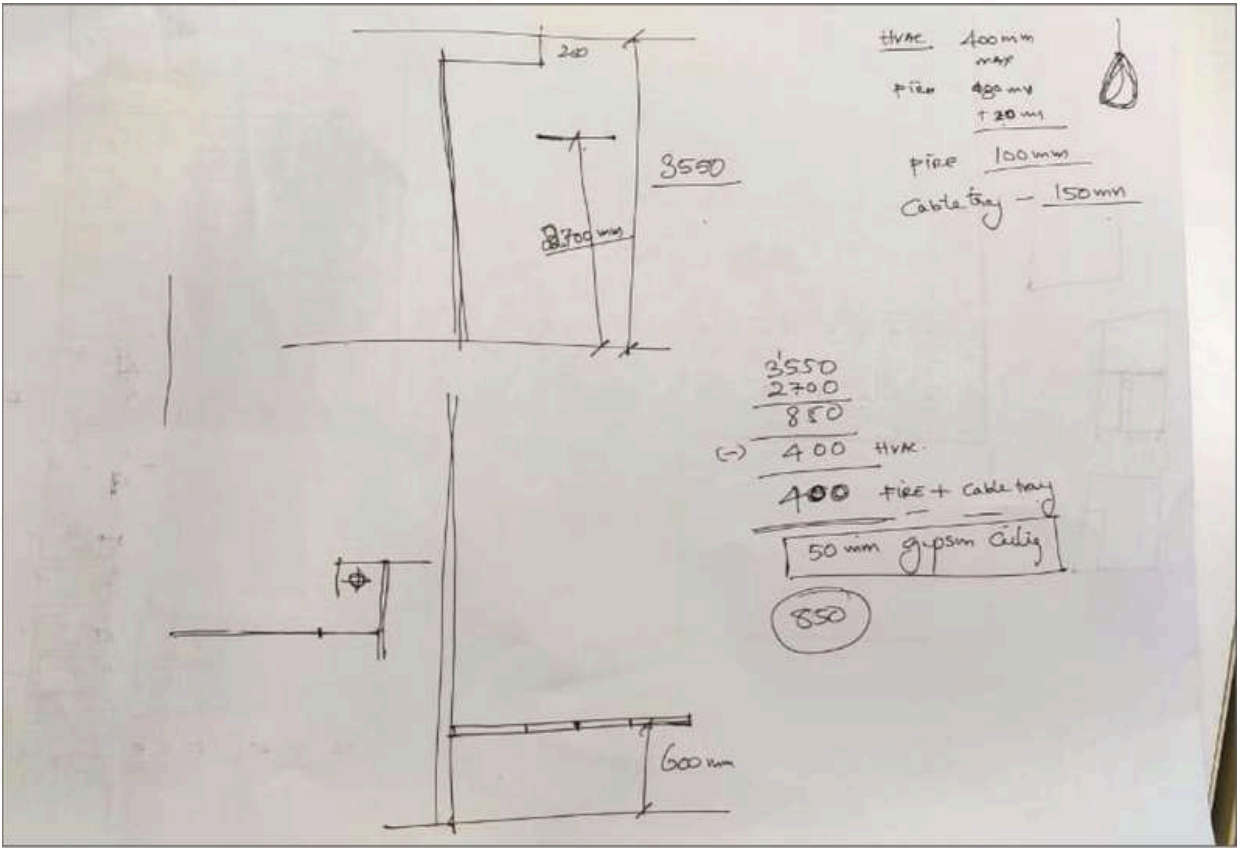 200
3550
2700 mm
HVAC 400 mm
max
+ 20 mm
FIRE 100mm
Cable tray - 150mm
3550
2700
850
(-) 400 HVAC.
400 FIRE + Cable tray
50 mm
850
600 mm